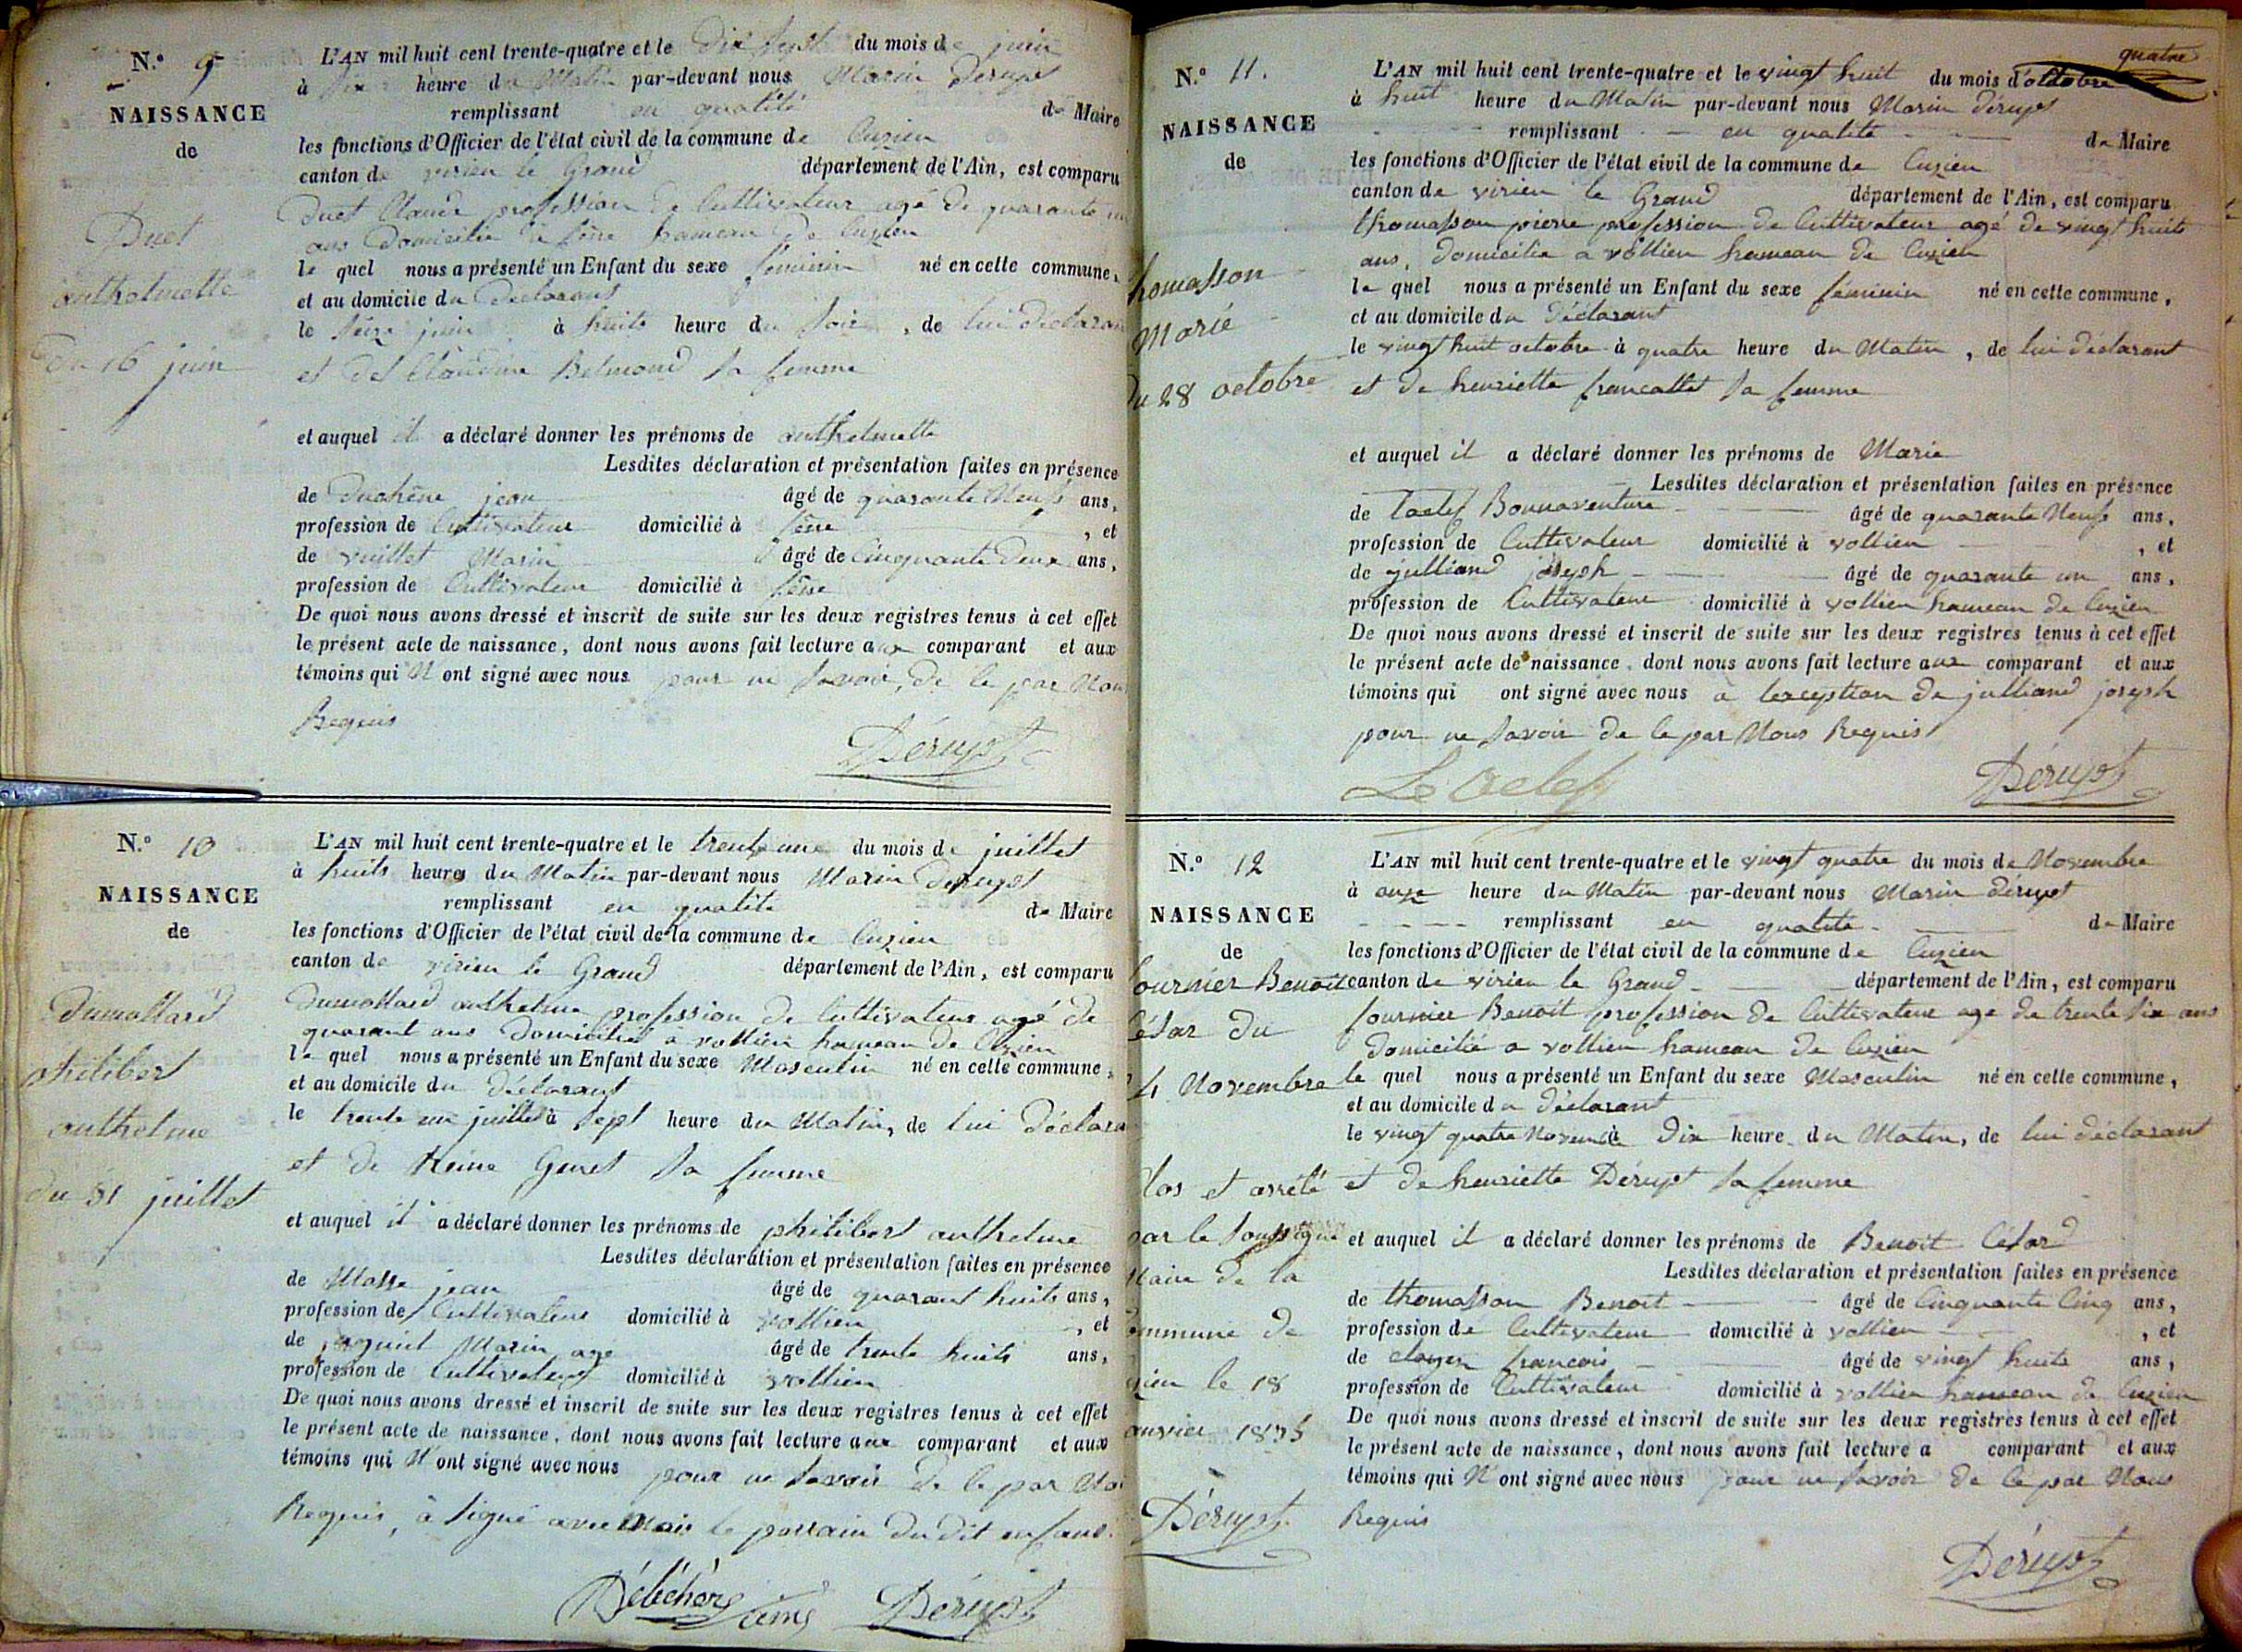 N.º 9
NAISSANCE
de
Duet
anthelmette
du 16 juin
L'AN mil huit cent trente-quatre et le dix sept du mois de juin
à dix heure du Matin par-devant nous Marin Dérupt
remplissant en qualité de Maire
les fonctions d'Officier de l'état civil de la commune de Cuzieu
canton de virieu le Grand département de l'Ain, est comparu
Duet Claude profession de Cultivateur agé de quarante
ans domicilié à hameau de Cuzieu
le quel nous a présenté un Enfant du sexe féminin né en cette commune,
et au domicile du déclarant
le seize juin à huits heure du soir, de lui déclaran
et de Claudine Belmond sa femme
et auquel il a déclaré donner les prénoms de anthelmette
Lesdites déclaration et présentation faites en présence
de Duchêne jean âgé de quarante Neufs ans,
profession de Cultivateur domicilié à , et
de vuillet Marin âgé de Cinquante deux ans,
profession de Cultivateur domicilié à
De quoi nous avons dressé et inscrit de suite sur les deux registres tenus à cet effet
le présent acte de naissance, dont nous avons fait lecture aux comparant et aux
témoins qui N'ont signé avec nous pour ne savoir, de ce par Nous
Requis
Dérupt
N.º 10
NAISSANCE
de
Dumollard
philibert
anthelme
du 31 juillet
L'AN mil huit cent trente-quatre et le trente une du mois de juillet
à huits heures du Matin par-devant nous Marin Dérupt
remplissant en qualité de Maire
les fonctions d'Officier de l'état civil de la commune de Cuzieu
canton de virieu le Grand département de l'Ain, est comparu
Dumollard anthelme profession de Cultivateur agé de
quarant ans domicilié à vollien hameau de Cuzieu
le quel nous a présenté un Enfant du sexe Masculin né en cette commune,
et au domicile du déclarant
le trente un juillet à sept heure du Matin, de lui déclara
et de Reine Genet sa femme
et auquel il a déclaré donner les prénoms de philibert anthelme
Lesdites déclaration et présentation faites en présence
de Masse jean âgé de quarant huits ans,
profession de Cultivateur domicilié à vollien , et
de Marin age âgé de trente huits ans,
profession de Cultivateur domicilié à vollien
De quoi nous avons dressé et inscrit de suite sur les deux registres tenus à cet effet
le présent acte de naissance, dont nous avons fait lecture aux comparant et aux
témoins qui N'ont signé avec nous pour ne savoir de ce par No
Requis, à signé avec Mois le parrain du dit enfant.
Dérupt
N.º 11.
NAISSANCE
de
homasson
Marie
du 28 octobre
quatre
L'AN mil huit cent trente-quatre et le vingt huit du mois d'octobre
à huit heure du Matin par-devant nous Marin Dérupt
remplissant en qualité de Maire
les fonctions d'Officier de l'état civil de la commune de Cuzieu
canton de virieu le Grand département de l'Ain, est comparu
thomasson pierre profession de Cultivateur agé de vingt huits
ans, domicilié a vollien hameau de Cuzieu
le quel nous a présenté un Enfant du sexe féminin né en cette commune,
et au domicile du Déclarant
le vingt huit octobre à quatre heure du Matin, de lui déclarant
et de henriette francallet sa femme
et auquel il a déclaré donner les prénoms de Marie
Lesdites déclaration et présentation faites en présence
de Bonnaventure âgé de quarante Neufs ans,
profession de Cultivateur domicilié à vollien , et
de julliand joseph âgé de quarante un ans,
profession de Cultivateur domicilié à vollien hameau de Cuzieu
De quoi nous avons dressé et inscrit de suite sur les deux registres tenus à cet effet
le présent acte de naissance, dont nous avons fait lecture aux comparant et aux
témoins qui ont signé avec nous à lexception de julliand joseph
pour ne savoir de ce par Nous Requis
Dérupt
N.º 12
NAISSANCE
de
fournier Benoit
César du
24 Novembre
L'AN mil huit cent trente-quatre et le vingt quatre du mois de Novembre
à onze heure du Matin par-devant nous Marin dérupt
remplissant en qualité de Maire
les fonctions d'Officier de l'état civil de la commune de Cuzieu
canton de virieu le Grand département de l'Ain, est comparu
fournier Benoit profession de Cultivateur age de trente six ans
domicilié a vollien hameau de Cuzieu
le quel nous a présenté un Enfant du sexe Masculin né en cette commune,
et au domicile du déclarant
le vingt quatre Novembre à Dix heure du Matin, de lui déclarant
et de henriette Dérupt sa femme
et auquel il a déclaré donner les prénoms de Benoit César
Lesdites déclaration et présentation faites en présence
de thomasson Benoit âgé de Cinquante Cinq ans,
profession de Cultivateur domicilié à vollien , et
de francois âgé de vingt huits ans,
profession de Cultivateur domicilié à vollien hameau de Cuzieu
De quoi nous avons dressé et inscrit de suite sur les deux registres tenus à cet effet
le présent acte de naissance, dont nous avons fait lecture a comparant et aux
témoins qui N'ont signé avec nous pour ne savoir de ce par Nous
Requis
Dérupt
Clos et arrêté
par le soussigné
Maire de la
commune de
Cuzieu le 18
janvier 1835
Dérupt